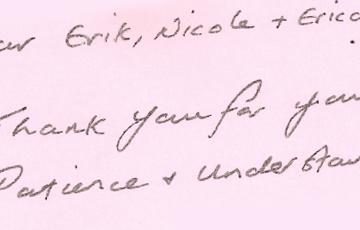 ar Erik, Nicole + Erica
Thank you for you
Patience + Understan